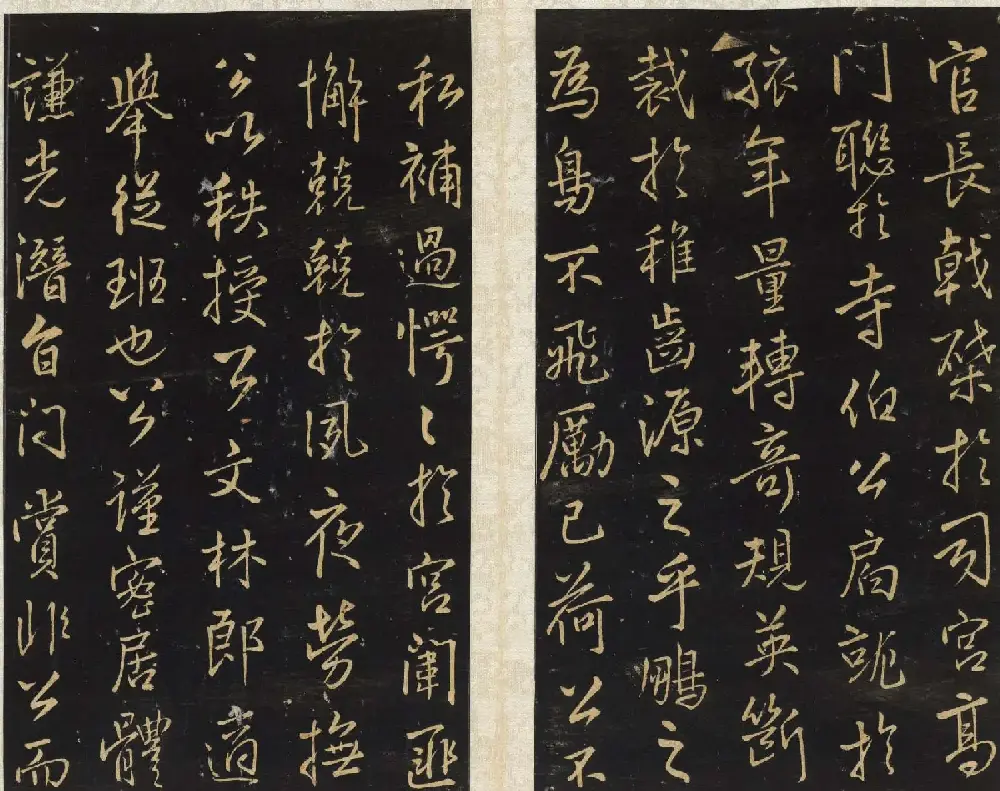 官長戟磔於司宮高
門聯於寺伯公扇於
孩年量轉奇規英斷
裁於稚齒源之乎鵬之
為鳥不飛勵已荷公不
私補過愕〻於宮闈匪
懈兢兢於夙夜勞撫
公以秩授公文林郎適
舉從班也公謹密居體
謙光潛自賞非公而